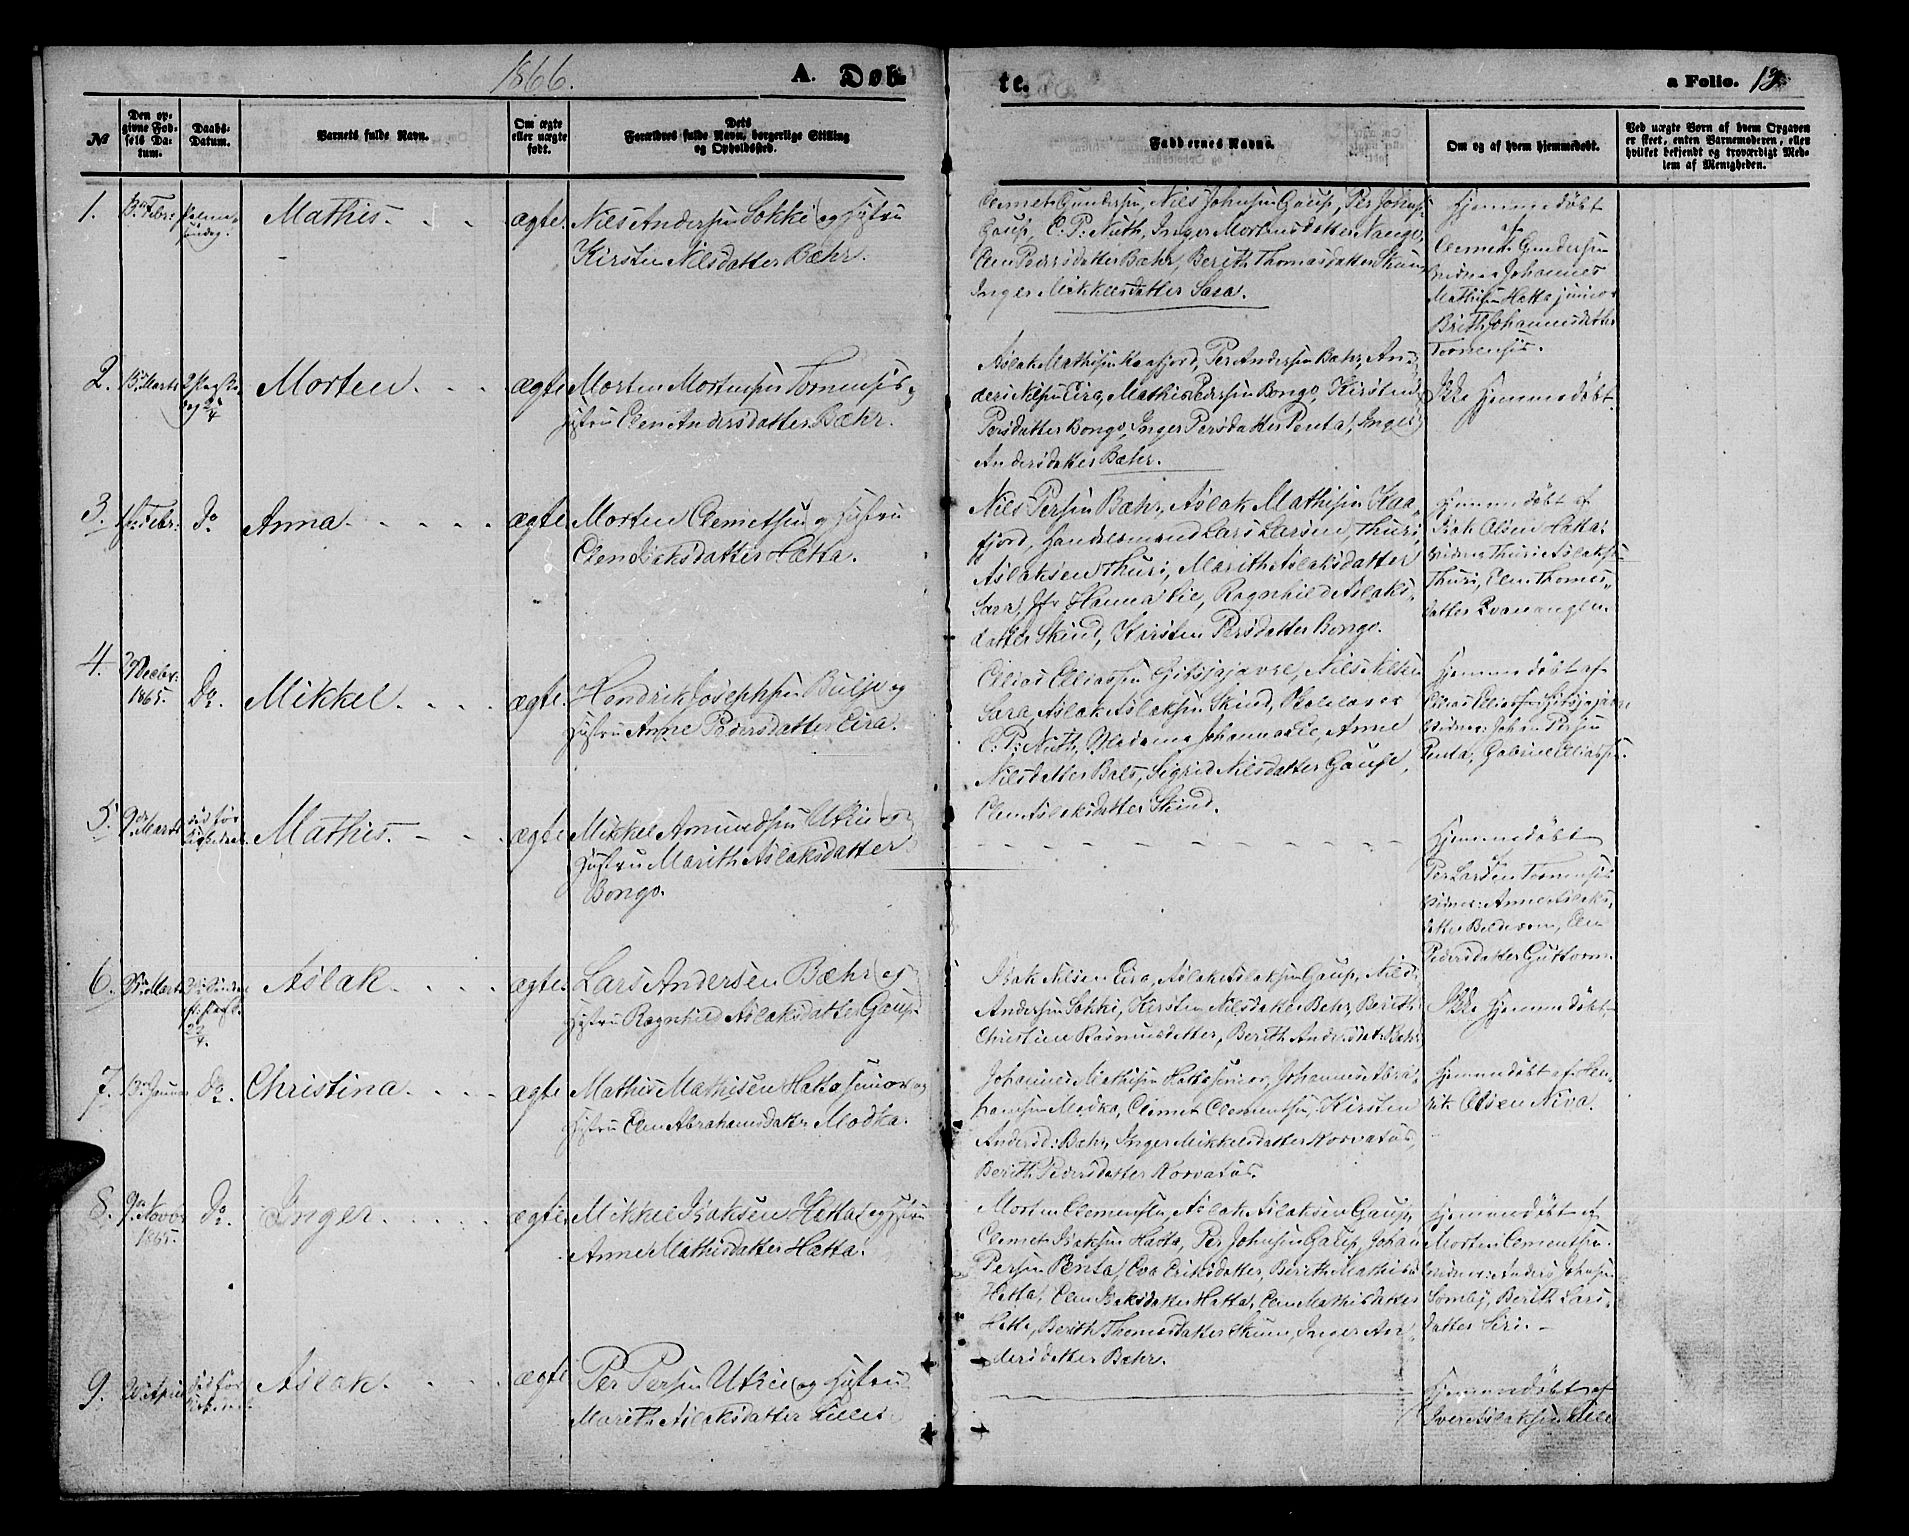 1866.
A. Døb
te.
a Folio. 13
No
Den opgivne Fødsels Datum.
Daabs-Datum.
Barnets fulde Navn.
Om ægte eller uægte født.
Dets Forældres fulde Navn, borgerlige Stilling og Opholdssted.
Faddernes Navne.
Om og af hvem hjemmedøbt.
Ved uægte Børn af hvem Opgaven er skeet, enten Barnemoderen, eller hvilket bekjendt og troværdigt Medlem af Menigheden.
1. Febr: Mathis ægte. Nils Andersen Sokki og Hustru
Kirsten Nilsdatter Bæhr.
Clemet Gundersen, Nils Johnsen Gaup, Per Johns:
Gaup, C. P: Nuth, Inger Mortensdatter Nango,
Elen Pedersdatter Bæhr, Berith Thomasdatter Skum
Inger Mikkelsdatter Sara.
Hjemmedøbt
af
Clemet Gundersen
Johannes
Mathisen Hætta junior
Berith Johannesdatter
Tornensis.
2. 13de Marts Morten ægte Morten Mortensen Tornensis og
Hustru Elen Andersdatter Bæhr.
Aslak Mathisen Kaafjord, Per Andersen Bæhr, An-
ders Nilsen Eira, Mathis Persen Bongo, Kirsten
Persdatter Bongo, Inger Persdatter Penta, Inger
Andersdatter Bæhr.
Ikke Hjemmedøbt.
3. Febr: Do Anna ægte Morten Clemetsen og Hustru
Elen Isaksdatter Hætta.
Nils Persen Bæhr, Aslak Mathisen Kaa-
fjord, Handelsmand Lars Larsen, Thuri
Aslaksen Thuri, Marith Aslaksdatter
Sara, Jfr Hanna Lie, Ragnhild Aslaks-
datter Skind, Kirsten Persdatter Bongo.
Hjemmedøbt af
Isak Olsen Hætta
Thuri Aslaksen
Thuri, Elen Thomes-
datter
4. Decbr: 1865. Do. Mikkel ægte. Hendrik Josephsen Buljo og
Hustru Anne Pedersdatter Eira.
Elias Eliassen Gitsjajavre, Nils Nilsen
Sara, Aslak Aslaksen Skind,
C. P: Nuth, Madame Johanna Lie, Anne
Nilsdatter Bals, Sigrid Nilsdatter Gaup,
Elen Aslaksdatter Skind.
Hjemmedøbt af
Elias Eliassen Gitsjajavre
John Persen
Penta, Gabriel Eliassen.
5. 9de Marts Mathis. ægte Mikkel Amundsen Utsi og
Hustru Marith Aslaksdatter
Bongo.
Hjemmedøbt
af
Per Larsen Tornensis
Anne Aslaks-
datter, Elen
Pedersdatter Guttorm.
6. Marts Aslak ægte. Lars Andersen Bæhr og
Hustru Ragnhild Aslaksdatter Gaup.
Isak Nilsen Eira, Aslak Aslaksen Gaup, Nils
Andersen Sokki, Kirsten Nilsdatter Bæhr, Berith
Christine Rasmusdatter, Berith Andersdat: Bæhr.
Ikke Hjemmedøbt.
7. Januar Do. Christina ægte Mathis Mathisen Hætta senior og
Hustru Elen Abrahamsdatr Modka.
Johannes Mathisen Hætta senior, Johannes Abra-
hamsen Modka, Clemet Clemetsen, Kirsten
Andersd: Bæhr, Inger Mikkelsdatter Norvatus,
Berith Pedersdatter Norvatus.
Hjemmedøbt af Hen-
rik Olsen Niva.
8. 9de Novbr 1865. Do. Inger ægte Mikkel Isaksen Hætta og Hustru
Anne Mathisdatter Hætta.
Morten Clemetsen, Aslak Aslaksen Gaup,
Clemet Isaksen Hætta, Per Johnsen Gaup, Johan
Persen Penta, Eva Eriksdatter, Berith Mathisd
Hætta, Elen Isaksdatter Hætta, Elen Mathisdatter
Hætta, Berith Thomasdatter Skum, Inger An-
dersdatter Bæhr.
Hjemmedøbt af
Morten Clemetsen.
Anders Johnsen
Somby, Berith Lars-
datter Siri.
9. April Aslak. ægte Per Persen Utsi og Hustru
Marith Aslaksdatter Lille.
Hjemmedøbt af
Iver Aslaksen Lille